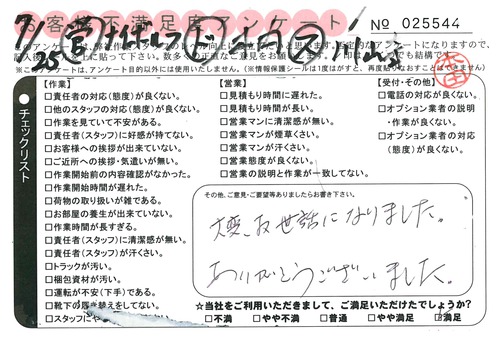 お客様不満足度アンケート
№ 025544
7/25
チェックリスト
【作業】
□責任者の対応(態度)が良くない。
□他のスタッフの対応(態度)が良くない。
□作業を見ていて不安がある。
□責任者(スタッフ)に好感が持てない。
□お客様への挨拶が出来ていない。
□ご近所への挨拶・気遣いが無い。
□作業開始前の内容確認がなかった。
□作業開始時間が遅れた。
□荷物の取り扱いが雑である。
□お部屋の養生が出来ていない。
□作業時間が長すぎる。
□責任者(スタッフ)に清潔感が無い。
□責任者(スタッフ)が汗くさい。
□トラックが汚い。
□梱包資材が汚い。
□運転が不安(下手)である。
□靴下の履き替えをしてない。
【営業】
□見積もり時間に遅れた。
□見積もり時間が長い。
□営業マンに清潔感が無い。
□営業マンが煙草くさい。
□営業マンが汗くさい。
□営業態度が良くない。
□営業の説明と作業が一致してない。
【受付・その他】
□電話の対応が良くない。
□オプション業者の説明
・作業が良くない。
□オプション業者の対応
(態度)が良くない。
その他、ご意見・ご要望等ありましたらお書き下さい。
大変、お世話になりました。
ありがとうございました。
★当社をご利用いただきまして、ご満足いただけたでしょうか?
□不満 □やや不満 □普通 □やや満足 □満足